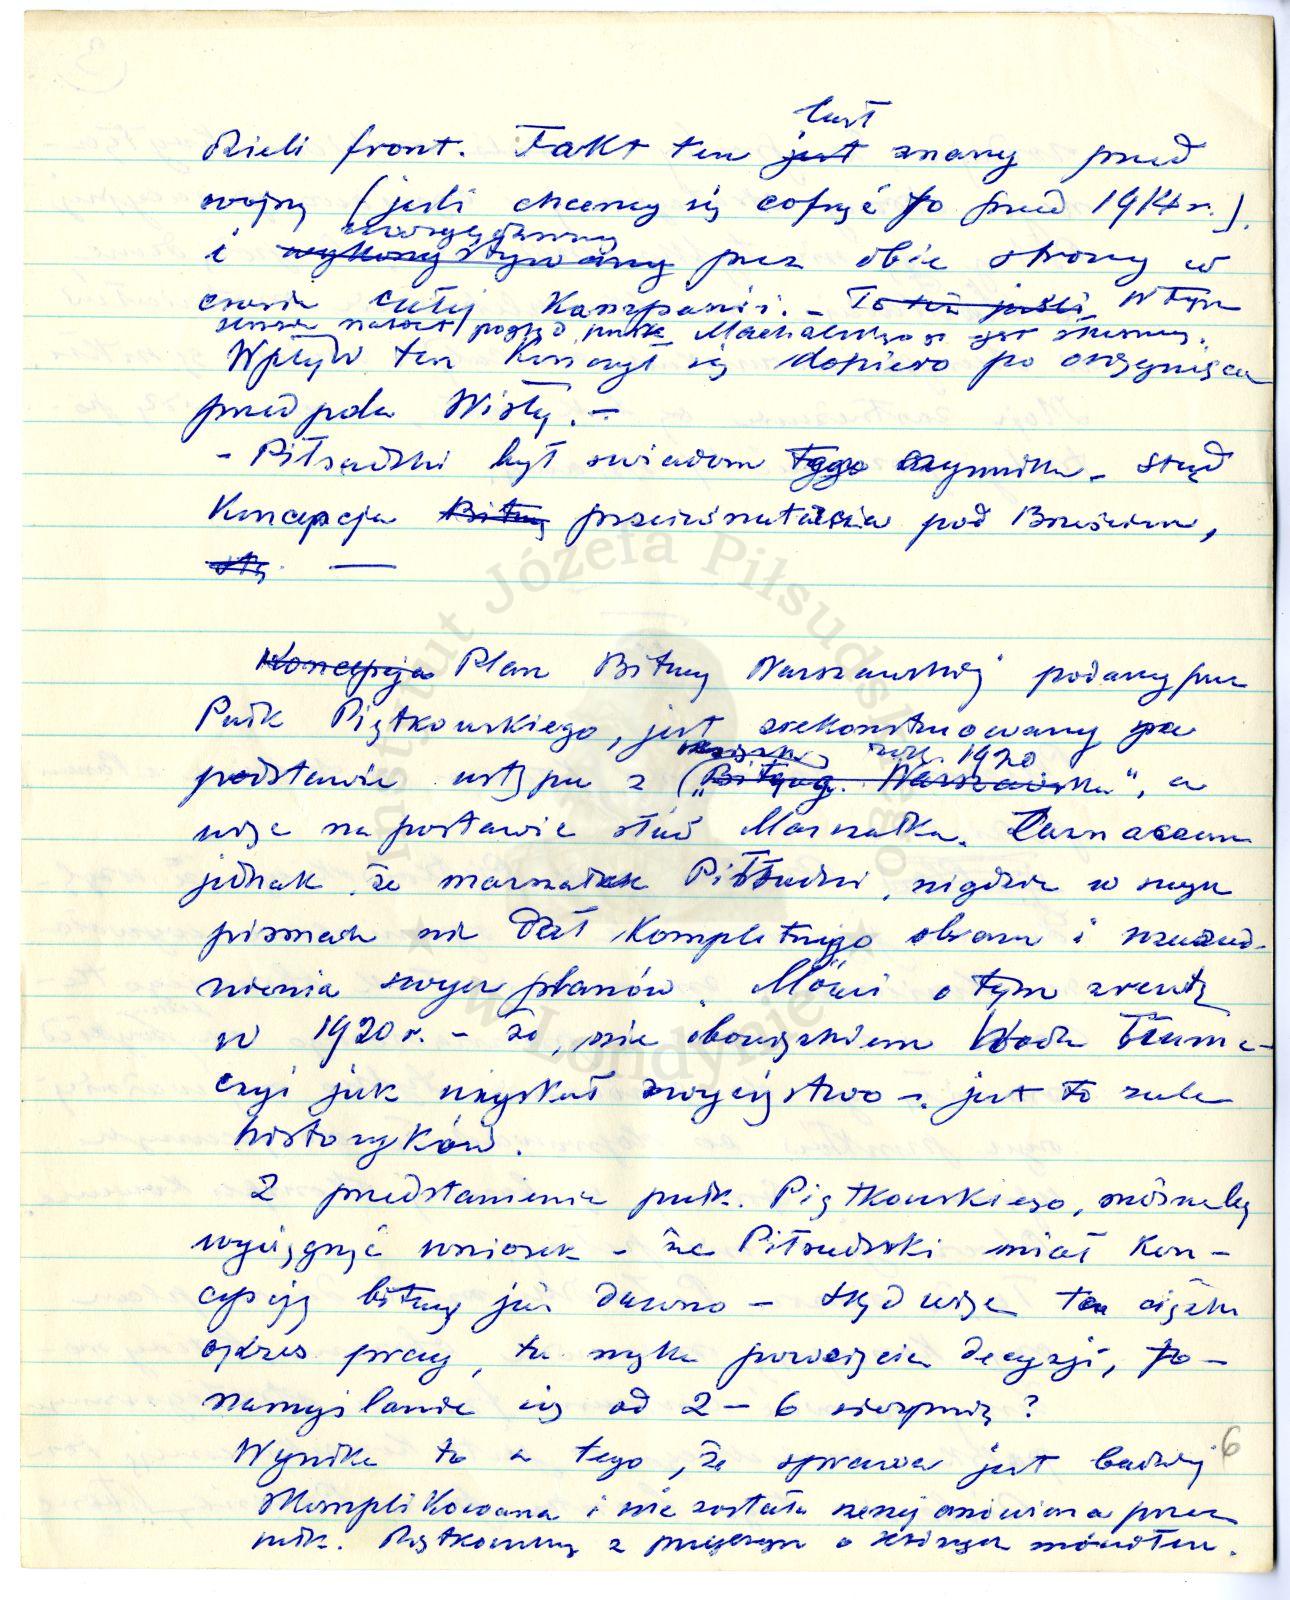 był
dzieli front. Fakt ten jest znany przed
wojną (jeśli chcemy się cofnąć do przed 1914 r.).
i wykorzystywany przez obie strony w
czasie całej Kampanii. - To też jeśli W tym
sensie nawet pogląd płk. Machalskiego jest słuszny.
Wpływ ten kończył się dopiero po osiągnięciu
przedpola Wisły. -
- Piłsudski był świadom tego czynnika - stąd
Koncepcja Bitwy przeciwnatarcia pod Brześciem,
Koncepcja Plan Bitwy Warszawskiej podany przez
Pułk Piątkowskiego, jest zrekonstruowany na
rok 1920
podstawie ustępu z („Bitwy Warszawska", a
więc na postawie słów Marszałka. Zaznaczam
jednak, że marszałek Piłsudski, nigdzie w swych
pismach nie dał kompletnego obrazu i uzasad-
nienia swych planów. Mówi o tym zresztą
w 1920 r. - że, nie obowiązkiem Wodza tłuma-
czyć jak uzyskał zwycięstwo -, jest to rola
historyków.
Z przedstawienia pułk. Piątkowskiego, możnaby
wyciągnąć wniosek - że Piłsudski miał Kon-
cepcję bitwy już dawno - skąd więc ten ciężki
okres pracy, ta męka powzięcia decyzji, to -
namyślanie się od 2 - 6 sierpnia?
Wynika to z tego, że sprawa jest bardziej
skomplikowana i nie została szerzej omówiona przez
pułk. Piątkowskiego z przyczyn o których mówiłem.
6
Instytut Józefa Piłsudskiego
w Londynie